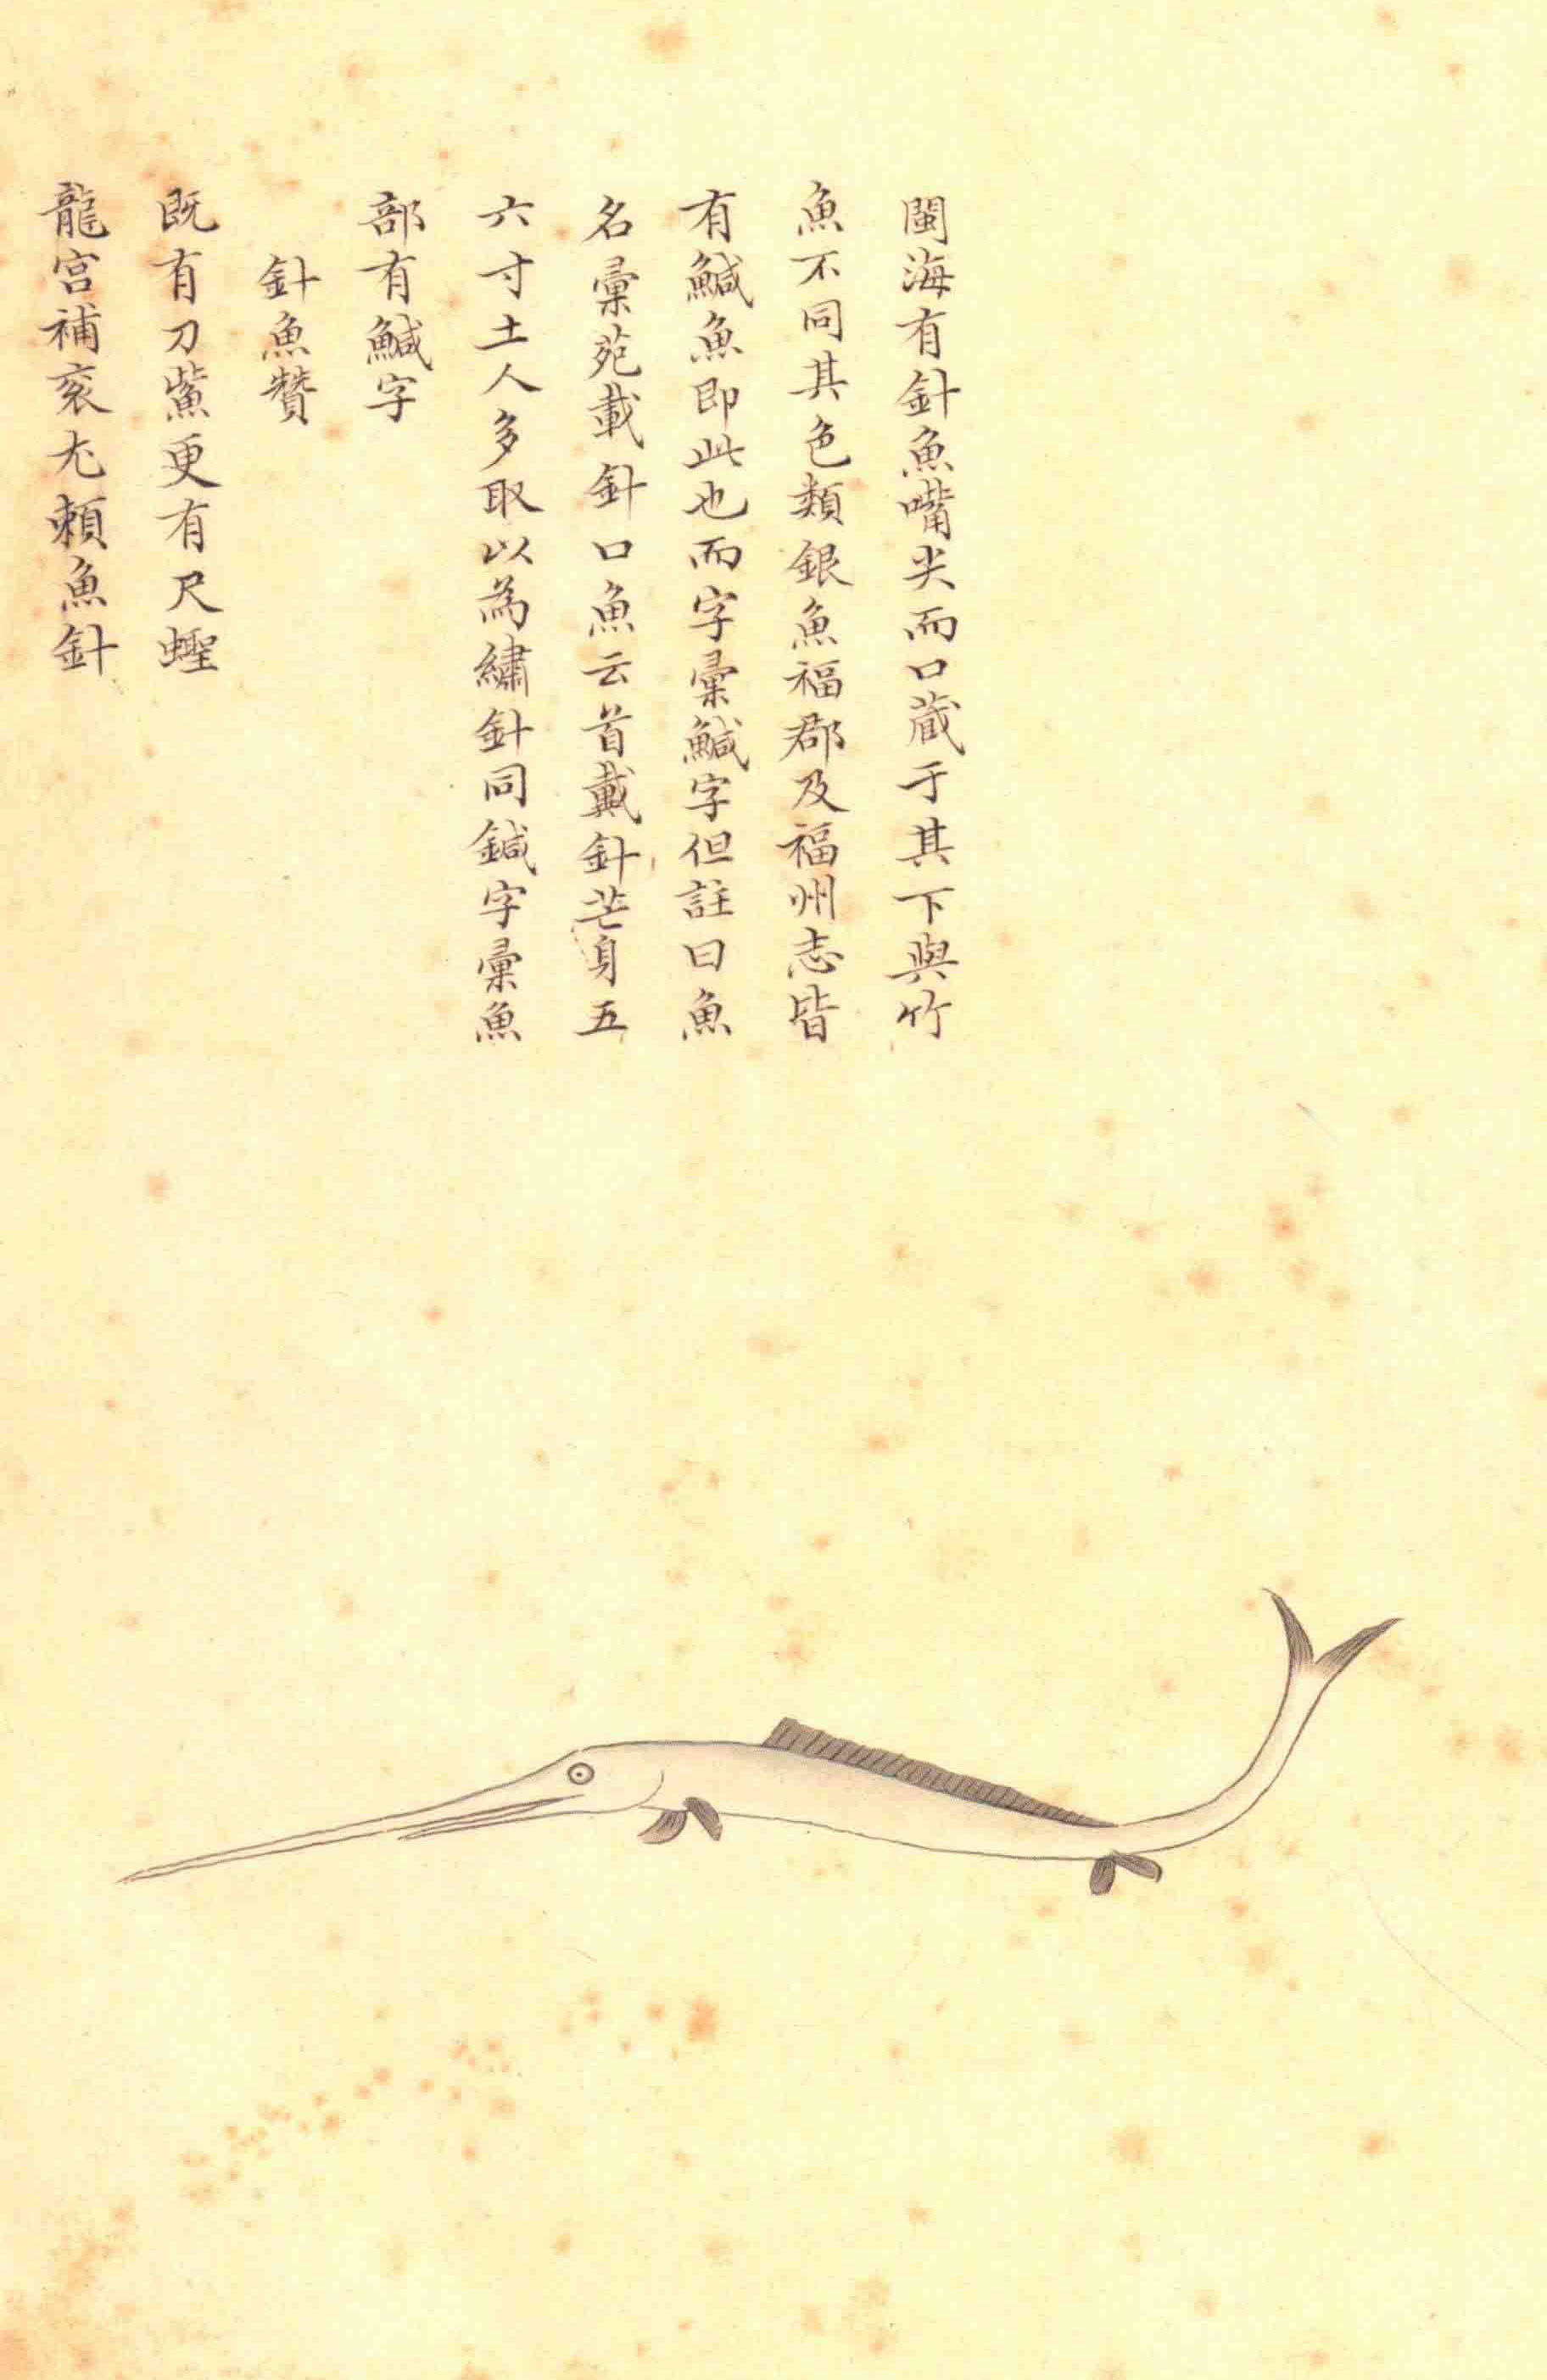 閩海有針魚嘴尖而口藏于其下與竹
魚不同其色類銀魚福郡及福州志皆
有鱵魚即此也而字彙鱵字但註曰魚
名彙苑載針口魚云首戴針芒身五
六寸土人多取以為繡針同鍼字彙魚
部有鱵字
針魚贊
既有刀鮆更有尺蟶
龍宮補衮尤賴魚針